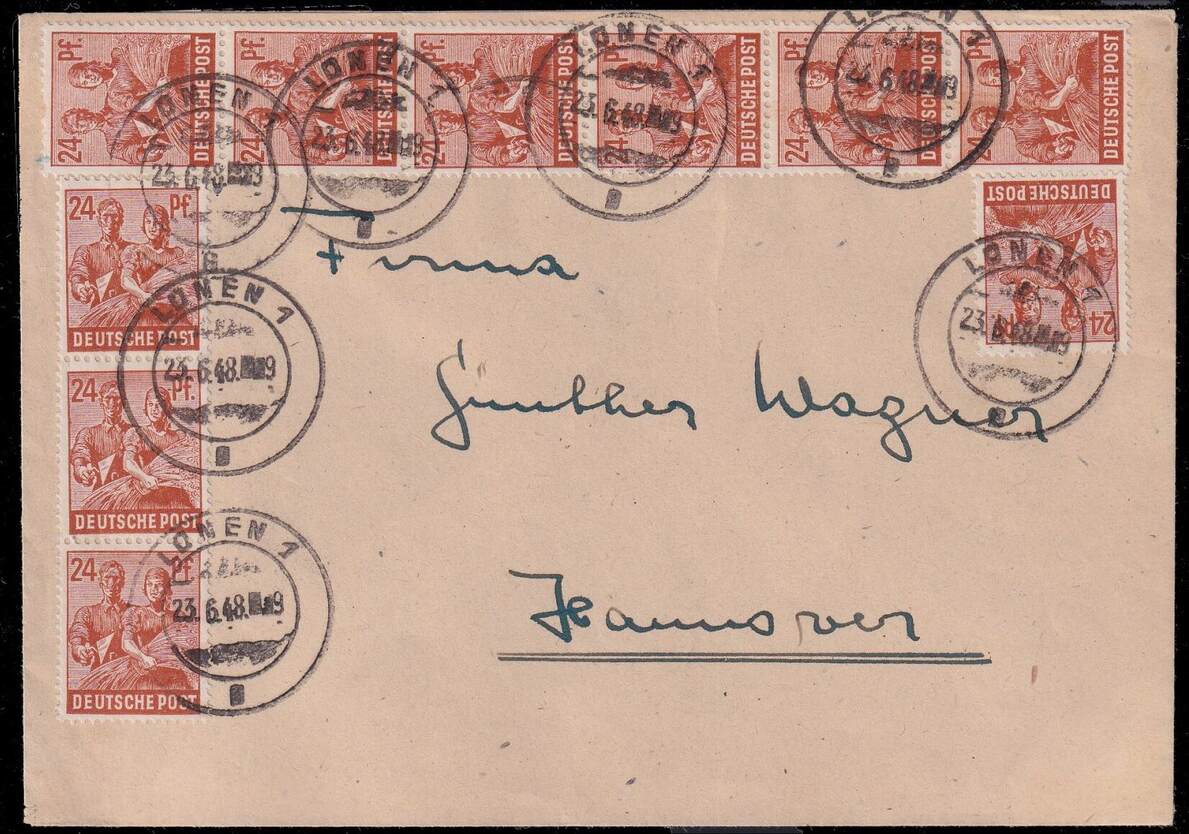 24 Pf. DEUTSCHE POST
24 Pf. DEUTSCHE POST
24 Pf. DEUTSCHE POST
24 Pf. DEUTSCHE POST
24 Pf. DEUTSCHE POST
24 Pf. DEUTSCHE POST
LÜNEN 1
23.6.48. 19
LÜNEN 1
23.6.48. 19
LÜNEN 1
23.6.48. 19
LÜNEN 1
23.6.48. 19
24 Pf.
DEUTSCHE POST
24 Pf.
DEUTSCHE POST
24 Pf.
DEUTSCHE POST
24
DEUTSCHE POST
LÜNEN 1
23.6.48. 19
LÜNEN 1
23.6.48. 19
LÜNEN 1
23.6.48. 19
Firma
Günther Wagner
Hannover